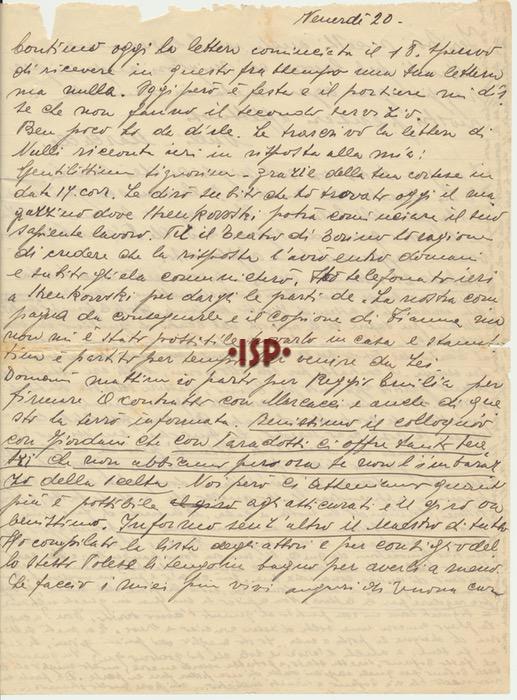 Venerdì 20.
Continuo oggi la lettera cominciata il 18. Speravo
di ricevere in questo frattempo una tua lettera
ma nulla. Oggi però è festa e il portiere mi dis
se che non fanno il secondo servizio.
Ben poco ho da dirle. Le trascrivo la lettera di
Nulli ricevuta ieri in risposta alla mia:
Gentilissima Signorina - grazie della sua cortese in
data 17. corr. Le dirò subito che ho trovato oggi il ma
gazzino dove Strenkovski potrà cominciare il suo
sapiente lavoro. Per il Teatro di Torino ho ragione
di credere che la risposta l'avrò entro domani
e subito gliela comunicherò. Ho telefonato ieri
a Strenkovski per dargli le parti de. La nostra com
pagna da consegnarle e il copione di Fiamma ma
non mi è stato possibile trovarlo in casa e stamat
tina è partito per tempo venire da Lei.
Domani mattina io parto per Reggio Emilia per
firmare il contratto con Marcacci e anche di que
sto la terrò informata. Benissimo il colloquio
con Giordani che con Paradossi ci offre tanti tea
tri che non abbiamo però osa se non l'imbaraz
zo della scelta. Noi però ci atteniamo quanto
più è possibile al giro agli assicurati e il giro va
benissimo. Informo senz'altro il Maestro di tutto
Ho compilato la lista degli attori e per consiglio del
lo stesso Polese li tengo in bagno per averli a meno.
Le faccio i miei più vivi auguri di buona cura
·ISP·